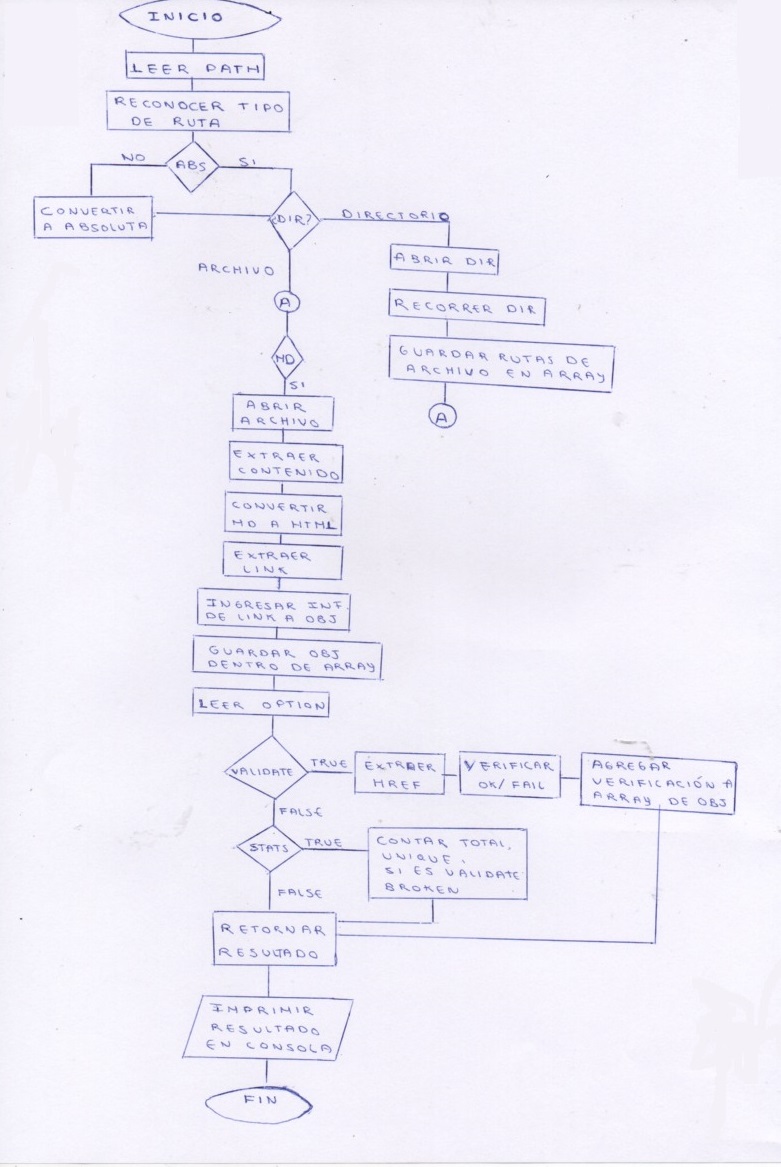 INICIO
LEER PATH
RECONOCER TIPO
DE RUTA
NO
ABS
SI
CONVERTIR
A ABSOLUTA
DIR?
DIRECTORIO
ARCHIVO
ABRIR DIR
RECORRER DIR
GUARDAR RUTAS DE
ARCHIVO EN ARRAY
A
A
MD
SI
ABRIR
ARCHIVO
EXTRAER
CONTENIDO
CONVERTIR
MD A HTML
EXTRAER
LINK
INGRESAR INF.
DE LINK A OBJ
GUARDAR OBJ
DENTRO DE ARRAY
LEER OPTION
VALIDATE
TRUE
EXTRAER
HREF
VERIFICAR
OK/FAIL
AGREGAR
VERIFICACIÓN A
ARRAY DE OBJ
FALSE
STATS
TRUE
CONTAR TOTAL,
UNIQUE,
SI ES VALIDATE
BROKEN
FALSE
RETORNAR
RESULTADO
IMPRIMIR
RESULTADO
EN CONSOLA
FIN